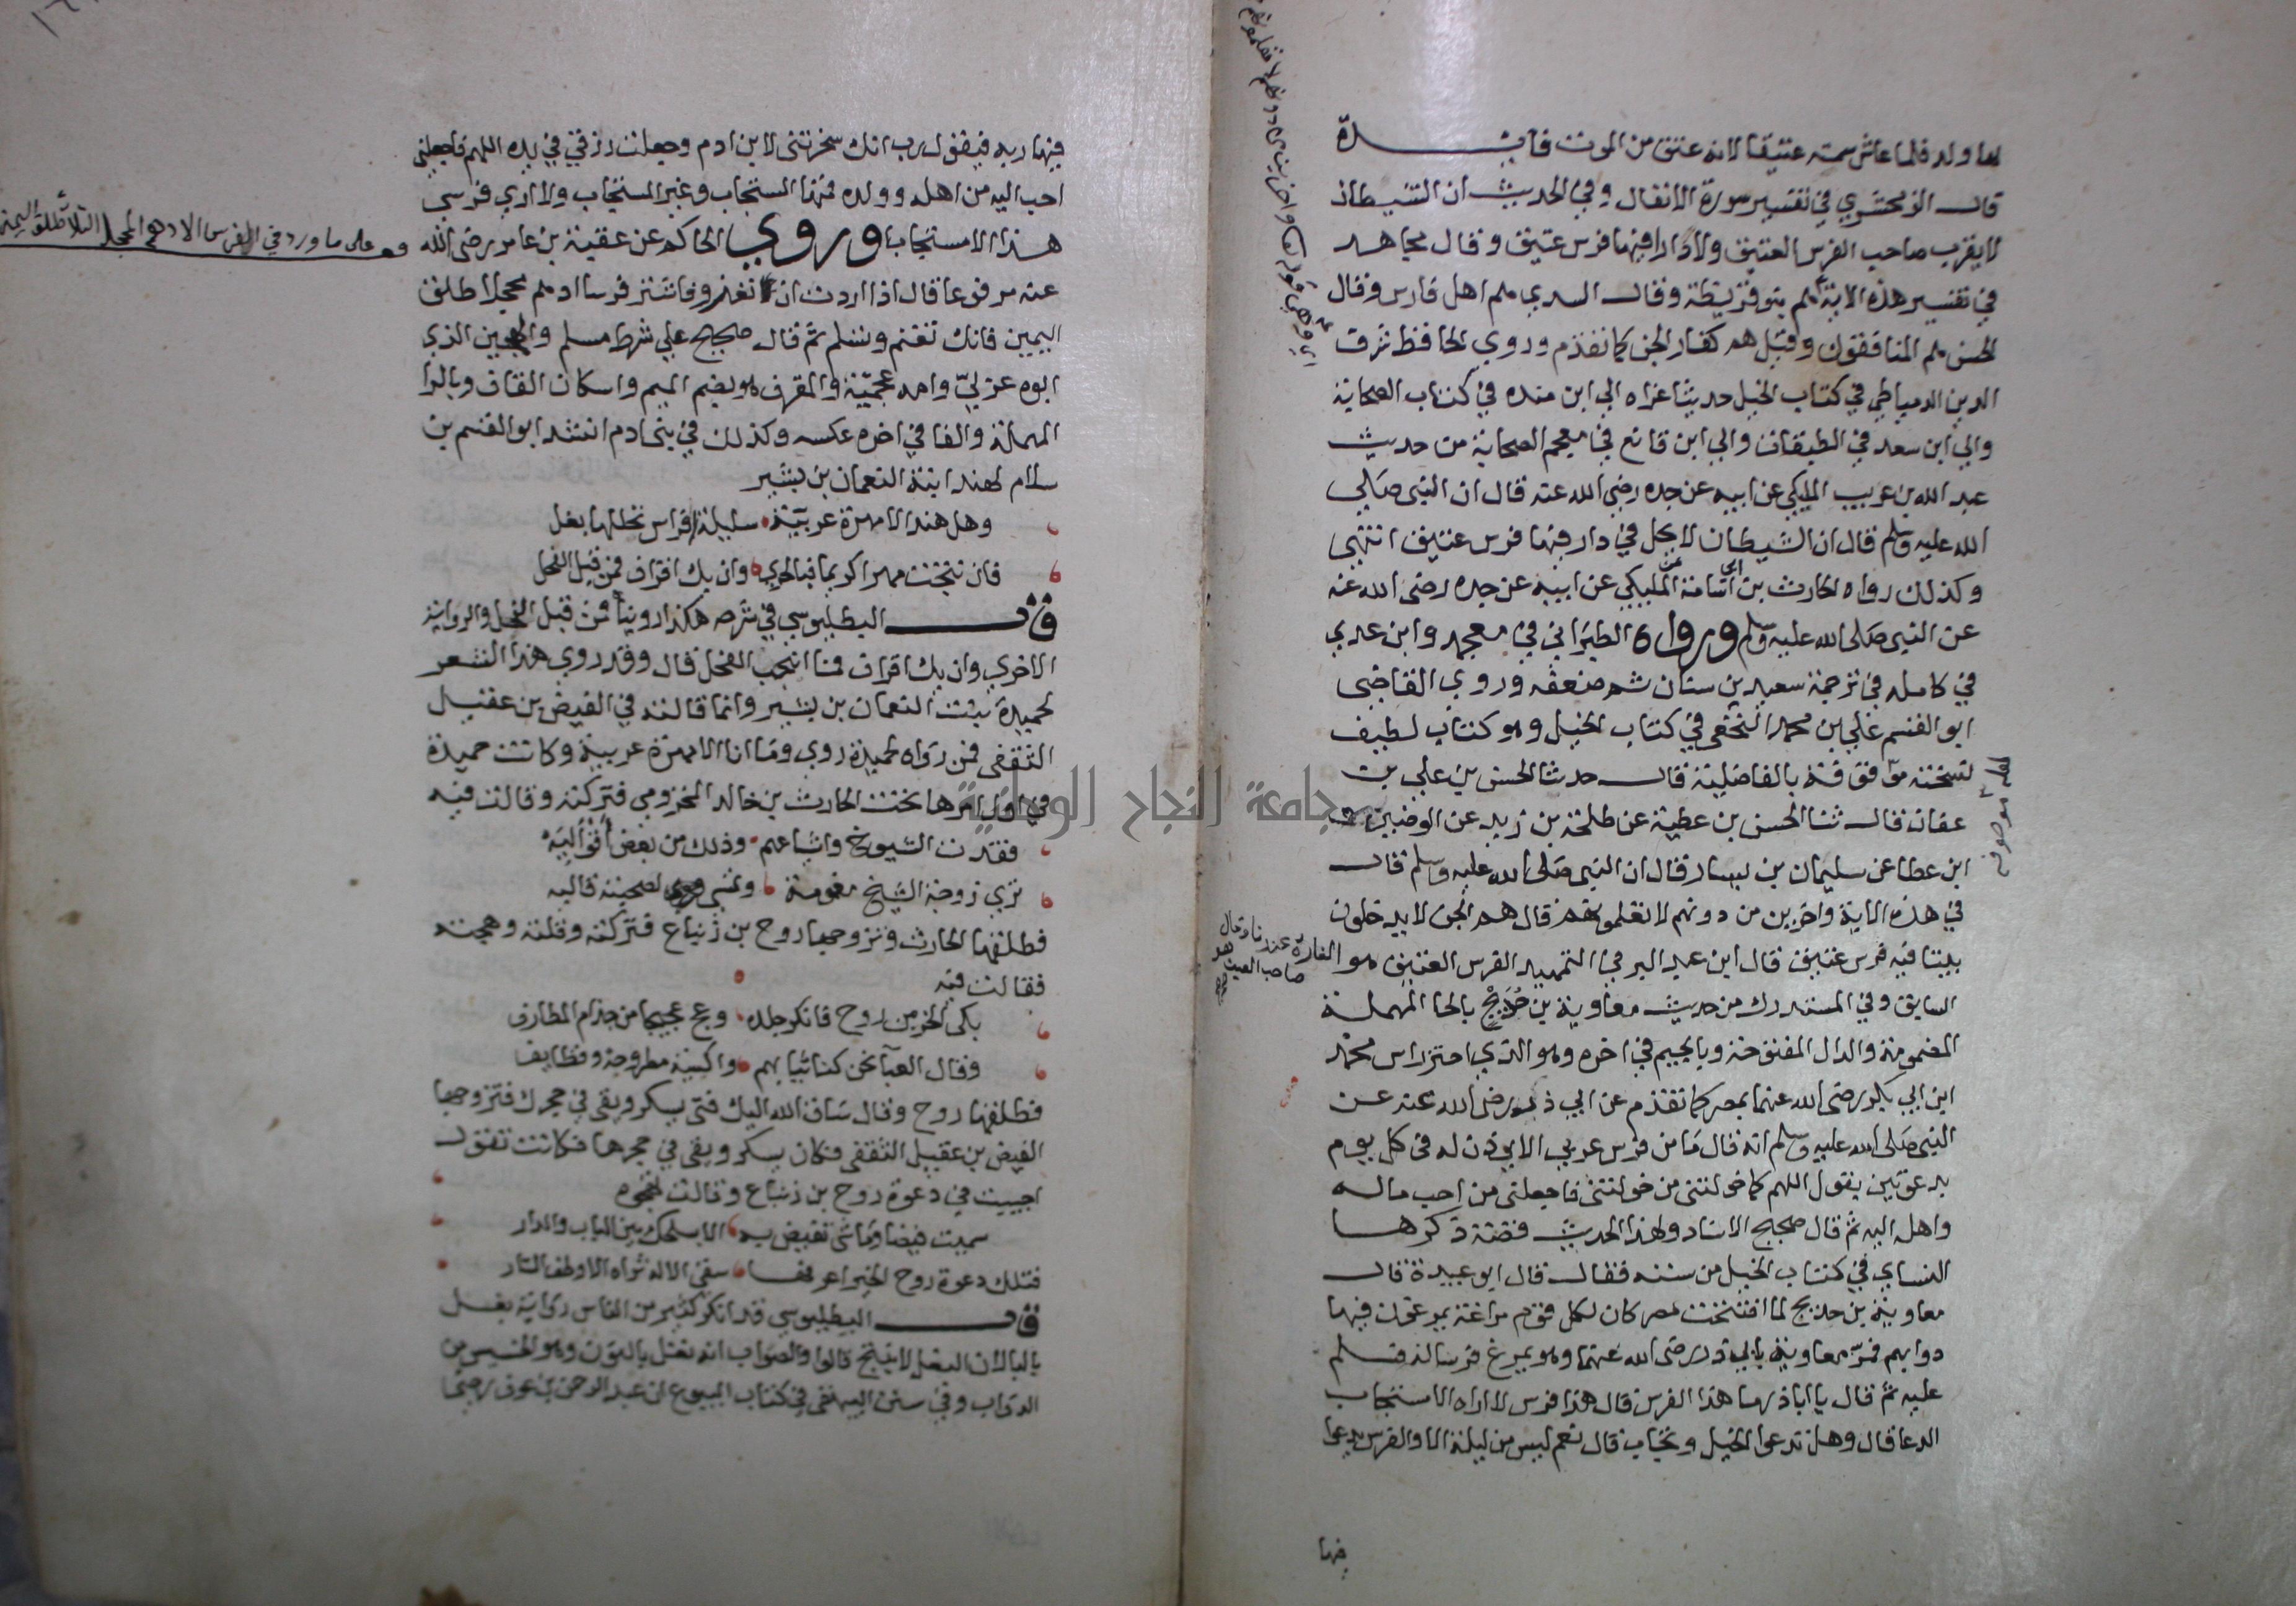 لها ولد فلما عاش سمته عتيقا لانه عتق من الموت فايدة
قال الزمخشري في تفسير سورة الانفال وفي الحديث ان الشيطان
لا يقرب صاحب الفرس العتيق ولا دارا فيها فرس عتيق وقال مجاهد
في تفسير هذه الاية هم بنو قريظة وقال السدي هم اهل فارس وقال
الحسن هم المنافقون وقيل هم كفار الجن كما تقدم وروي الحافظ شرف
الدين الدمياطي في كتاب الخيل حديثا عزاه الي ابن منده في كتاب الصحابة
والي ابن سعد في الطبقات والي ابن قانع في معجم الصحابة من حديث
عبد الله بن عريب المليكي عن ابيه عن جده رضي الله عنه قال ان النبي صلي
الله عليه وسلم قال ان الشيطان لا يحل في دار فيها فرس عتيق انتهي
وكذلك رواه الحارث بن ابي اسامة عن المليكي عن ابيه عن جده رضي الله عنه
عن النبي صلي الله عليه وسلم ورواه الطبراني في معجمه وابن عدي
في كامله في ترجمة سعيد بن سنان ثم ضعفه وروي القاضي
ابو القسم علي بن محمد النخعي في كتاب الخيل وهو كتاب لطيف
نسخته موقوفة بالفاضلية قال حدثنا الحسن بن علي بن
عفان قال ثنا الحسن بن عطية عن طلحة بن زيد عن الوضين
ابن عطا عن سليمان بن يسار قال ان النبي صلي الله عليه وسلم قال
في هذه الاية واخرين من دونهم لا تعلمونهم قال هم الجن لا يدخلون
بيتا فيه فرس عتيق قال ابن عبد البر في التمهيد الفرس العتيق هو الفاره عندنا وقال
صاحب العين هو
السابق وفي المستدرك من حديث معاوية بن حديج بالحا المهملة
المضمومة والدال المفتوحة وبالجيم في اخره وهو الذي احتز راس محمد
ابن ابي بكر رضي الله عنهما بمصر كما تقدم عن ابي ذر رضي الله عنه عن
النبي صلي الله عليه وسلم انه قال ما من فرس عربي الا يوذن له في كل يوم
بدعوتين يقول اللهم كما خولتني من خولتني فاجعلني من احب ماله
واهله اليه ثم قال صحيح الاسناد ولهذا الحديث قصة ذكرها
النساي في كتاب الخيل من سننه فقال قال ابو عبيدة قال
معاوية بن حديج لما افتتحت مصر كان لكل قوم مراغة يمرغون فيها
دوابهم فمر معاوية بابي ذر رضي الله عنهما وهو يمرغ فرسا له فسلم
عليه ثم قال يا اباذر ما هذا الفرس قال هذا فرس لا اراه الا مستجاب
الدعا قال وهل تدعو الخيل وتجاب قال نعم ليس من ليلة الا والفرس يدعو
فيها
فيها ربه فيقول رب انك سخرتني لابن ادم وجعلت رزقي في يده اللهم فاجعلني
احب اليه من اهله وولده فمنها المستجاب وغير المستجاب ولا اري فرسي
هذا الا مستجابا وروي الحاكم عن عقبة بن عامر رضي الله
وعلي ما ورد في الفرس الادهم المحجل الثلاث طلق اليمني
عنه مرفوعا قال اذا اردت ان تغزو فاشتر فرسا ادهم محجلا طلق
اليمين فانك تغنم وتسلم ثم قال صحيح علي شرط مسلم والهجين الذي
ابوه عربي وامه عجمية والمقرف هو بضم الميم واسكان القاف وبالرا
المهملة والفا في اخره عكسه وكذلك في بني ادم انشد ابو القسم بن
سلام لهند ابنة النعمان بن بشير
وهل هند الا مهرة عربية سليلة افراس تحللها بغل
فان نتجت مهرا كريما فبالحري وان يك اقراف فمن قبل الفحل
قال البطليوسي في شرحه هكذا رويناه من قبل الفحل والرواية
الاخري وان يك اقراف فما انجب الفحل قال وقد روي هذا الشعر
لحميدة بنت النعمان بن بشير وانما قالته في الفيض بن عقيل
الثقفي فمن رواه لحميدة روي وما انا الا مهرة عربية وكانت حميدة
في اول امرها تحت الحارث بن خالد المخزومي فتركته وقالت فيه
فقدت الشيوخ واشياعهم وذلك من بعض اقواليه
تري زوجة الشيخ مغمومة وتمسي لصحبته قاليه
فطلقها الحارث وتزوجها روح بن زنباع فتركته وقلته وهجته
فقالت فيه
بكي الخز من روح فانكر جلده وعج عجيجا من جذام المطارف
وقال العبا نحن كنا ثيابهم واكسية مطروحة وقطايف
فطلقها روح وقال ساق الله اليك فتي يسكر ويقي في حجرك فتزوجها
الفيض بن عقيل الثقفي فكان يسكر ويقي في حجرها فكانت تقول
اجيبت في دعوة روح بن زنباع وقالت تهجوه
سميت فيضا وما شي تفيض به الا بسلحك بين الباب والدار
فتلك دعوة روح الخير اعرفها سقي الاله ثراه الاوطف الساري
قال البطليوسي قد انكر كثير من الناس رواية بغل
بالبا لان البغل لا ينتج قالوا والصواب انه نغل بالنون وهو الخسيس من
الدواب وفي سنن البيهقي في كتاب البيوع ان عبد الرحمن بن عوف رضي
جامعة النجاح الوطنية